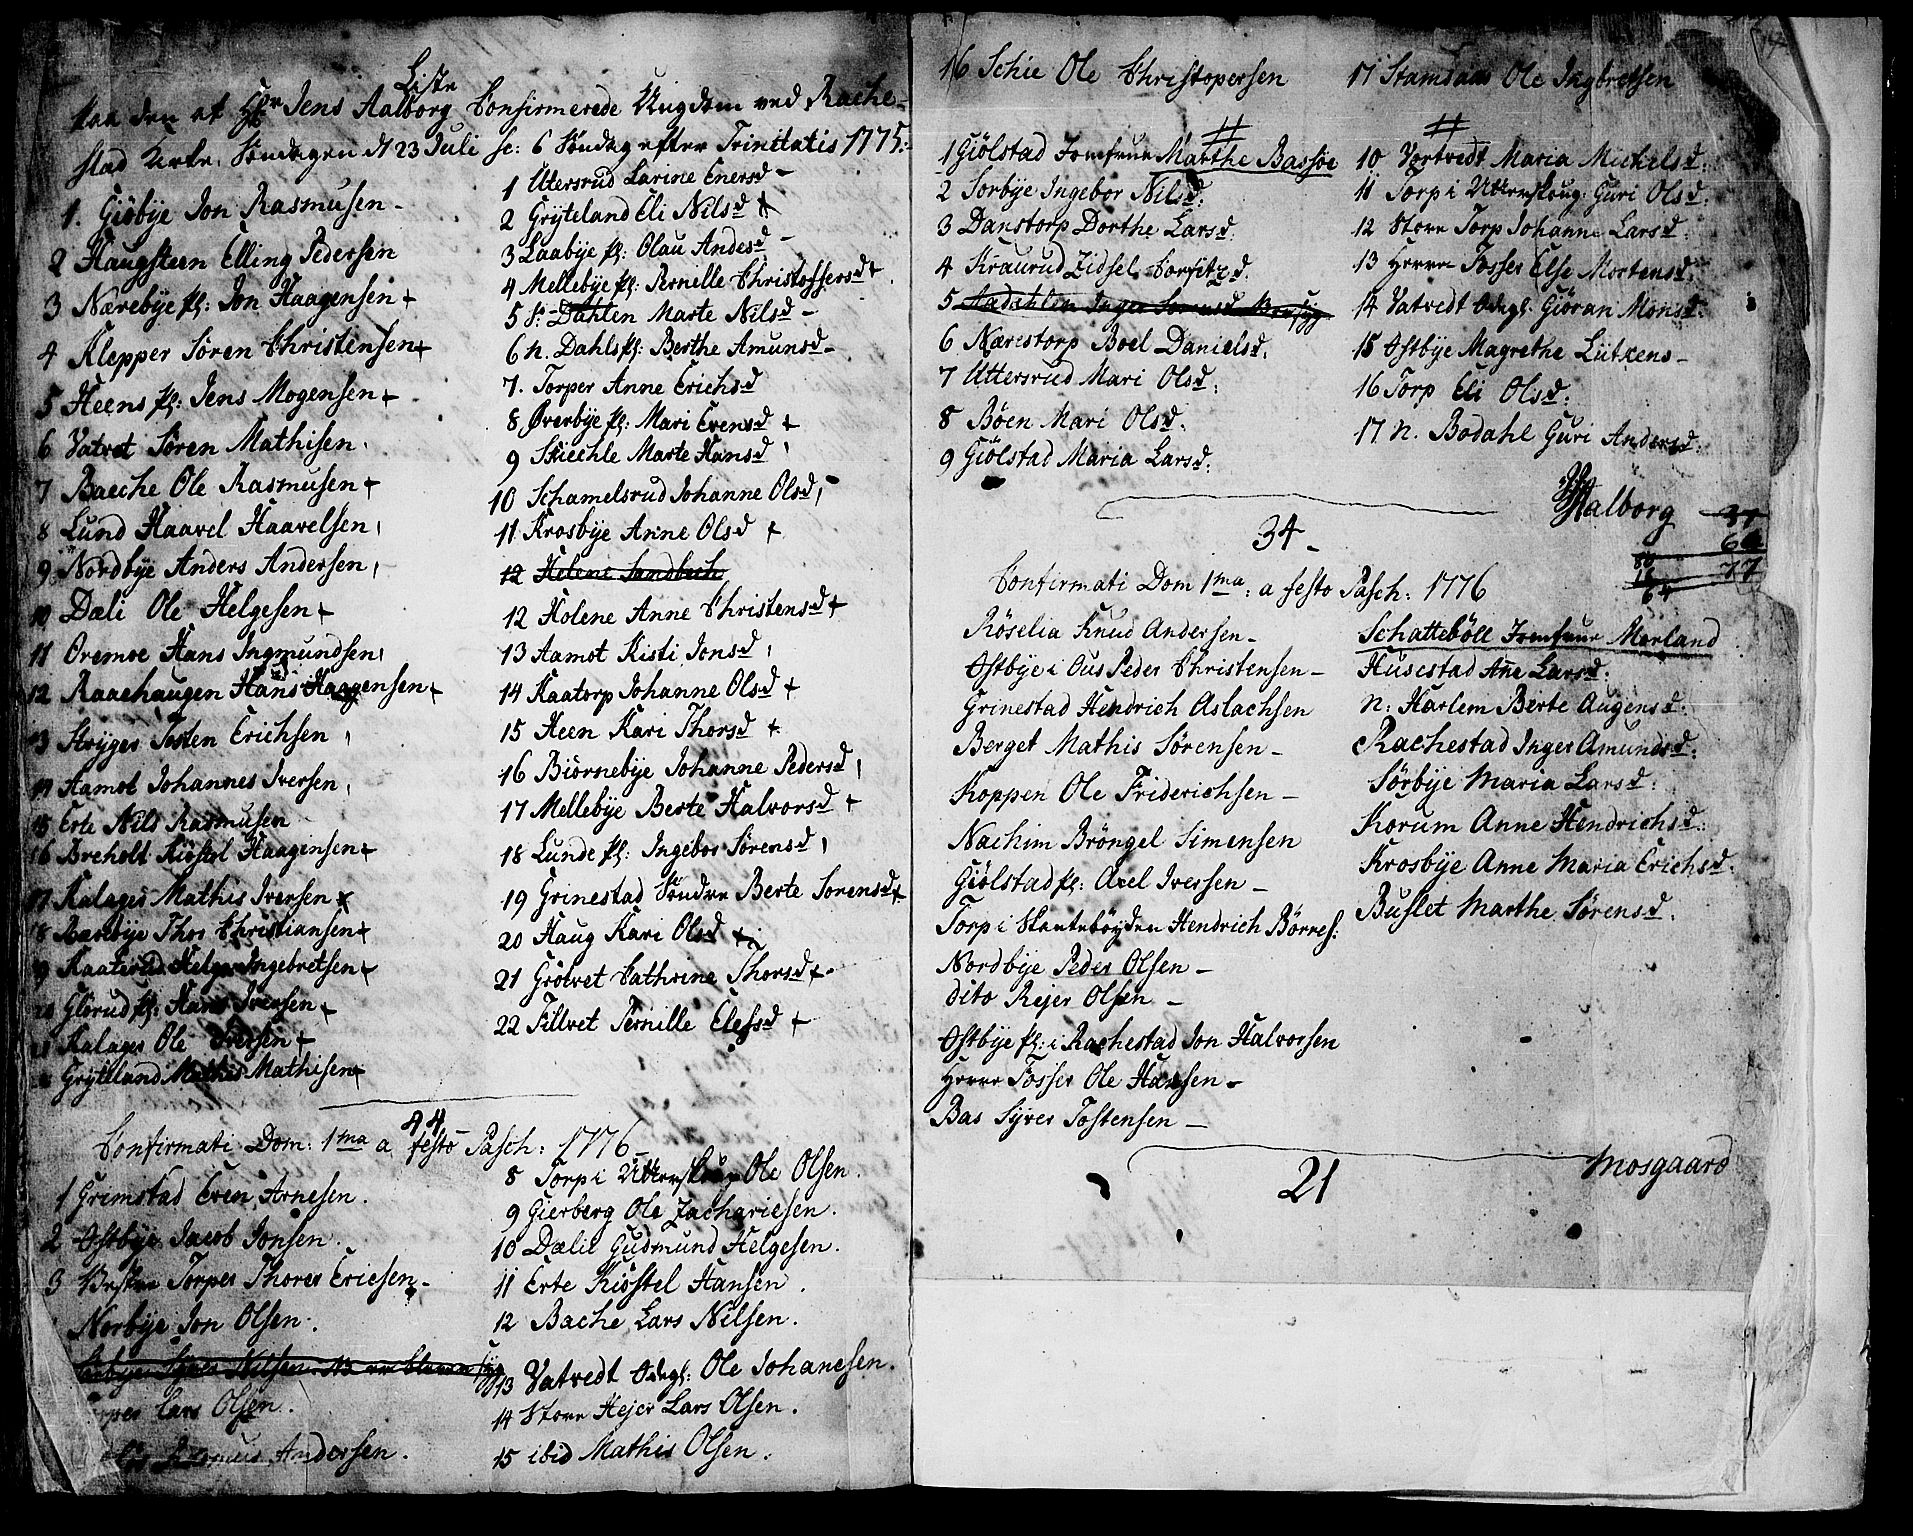 Liste
paa den af Hr Jens Aalborg Confirmerede Ungdom ved Rache-
stad Kirke, Søndagen d 23 Juli sc: 6 Søndag efter Trinitatis 1775.
1. Giöbÿe Jon Rasmusen -
2 Haugsteen Elling Pedersen
3 Nærebÿe pl: Jon Haagensen +
4 Klepper Sören Christensen +
5 Heens pl: Jens Mogensen +
6 Vatvet Sören Mathisen
7 Baeche Ole Rasmusen +
8 Lund Haavel Haavelsen
9 Nordbÿe Anders Andersen
10 Dæli Ole Helgesen +
11 Oremoe Hans Ingmundsen
12 Raaehaugen Hans Haagensen +
13 Strÿger Tosten Erichsen
14 Aamot Johannes Iversen
15 Erte Nils Rasmusen
16 Breholt Kiöstel Haagensen +
17 Kalager Mathis Iversen +
18 Nærebÿe Thor Christiansen +
19 Kaaterud Helge Ingebretsen +
20 Glörud pl: Hans Iversen +
21 Kalager Ole Iversen +
22 Grÿteland Mathis Mathisen +
1 Utersrud Larine Enersd -
2 Grÿteland Eli Nilsd +
3 Laabÿe pl: Olau Andersd -
4 Mellebÿe pl: Pernille Christoffersd +
5 S: Dahlen Marte Nilsd -
6 n. Dahls pl: Berthe Amunsd -
7. Torper Anne Erichsd
8 Øverbÿe pl: Mari Evensd +
9 Skiechle Marte Hansd
10 Schamelsrud Johanne Olsd
11 Krosbÿe Anne Olsd +
12 Helene Sandbech
12 Holene Anne Christensd +
13 Aamot Kisti Jonsd
14 Kaatorp Johanne Olsd +
15 Heen Kari Thorsd +
16 Biörnebÿe Johanne Pedersd
17 Mellebÿe Berte Halvorsd +
18 Lunde pl: Ingebor Sörensd
19 Grinestad Søndre Berte Sorensd +
20 Haug Kari Olsd +
21 Grötvet Cathrine Thorsd +
22 Tillvet Pernille Elefsd +
44
Confirmati Dom: 1ma a festo Pasch: 1776
1 Grimstad Even Arnesen.
2 Østbÿe Jacob Jonsen.
3 Vestre Torper Thorer Ericsen -
Norbÿe Jon Olsen.
Lars Olsen.
Andersen.
8 Torp i Utterskoug Ole Olsen.
9 Gierberg Ole Zachariesen.
10 Dælie Gudmund Helgesen.
11 Erte Kiöstel Hansen.
12 Bache Lars Nilsen.
13 Vatvedt Ødegl: Ole Johanesen.
14 Store Hejer Lars Olsen.
15 ibid Mathis Olsen.
16 Schie Ole Christopersen
17 Stamdaas Ole Ingbretsen
1 Giölstad Jomfrue Marthe Bassöe
2 Sorbÿe Ingebor Nilsd.
3 Danstorp Dorthe Larsd.
4 Kraurud Zidsel Corfitzd.
5 Aadahlen Inger Sorensd
6 Nærestorp Boel Danielsd.
7 Uttersrud Mari Olsd.
8 Böen Mari Olsd.
9 Giölstad Maria Larsd.
10 Vortvedt Maria Michelsd.
11 Torp i Utterskoug Guri Olsd.
12 Store Torp Johanne Larsd.
13 Herre Tosser Else Mortensd.
14 Vatvedt Ødegl. Giöran Monsd.
15 Østbÿe Magrethe Lütkens -
16 Torp Eli Olsd.
17 n. Bodahl Guri Andersd.
Aalborg
34 -
77
Confirmati Dom 1ma: a festo Pasch: 1776
Röselia Knud Andersen -
Østbÿe i Ous Peder Christensen -
Grinestad Hendrich Aslachsen
Berget Mathis Sørensen -
Koppen Ole Friderichsen -
Nachim Bröngel Simensen
Giölstad pl: Axel Iversen -
Torp i Skantebøÿden Hendrich Börres:
Nordbÿe Peder Olsen -
dito Rejer Olsen -
Østbÿe pl: i Rachestad Jon Halvorsen
Herre Tosser Ole Hansen -
Bas Sÿver Tostensen -
Schatteböll Jomfrue Morland
Husestad Ane Larsd.
n: Harlem Berte Augensd.
Rachestad Inger Amundsd.
Sørbÿe Maria Larsd.
Korum Anne Hendrichsd.
Krosbÿe Anne Maria Erichsd.
Buslet Marthe Sørensd.
21
Mosgaard